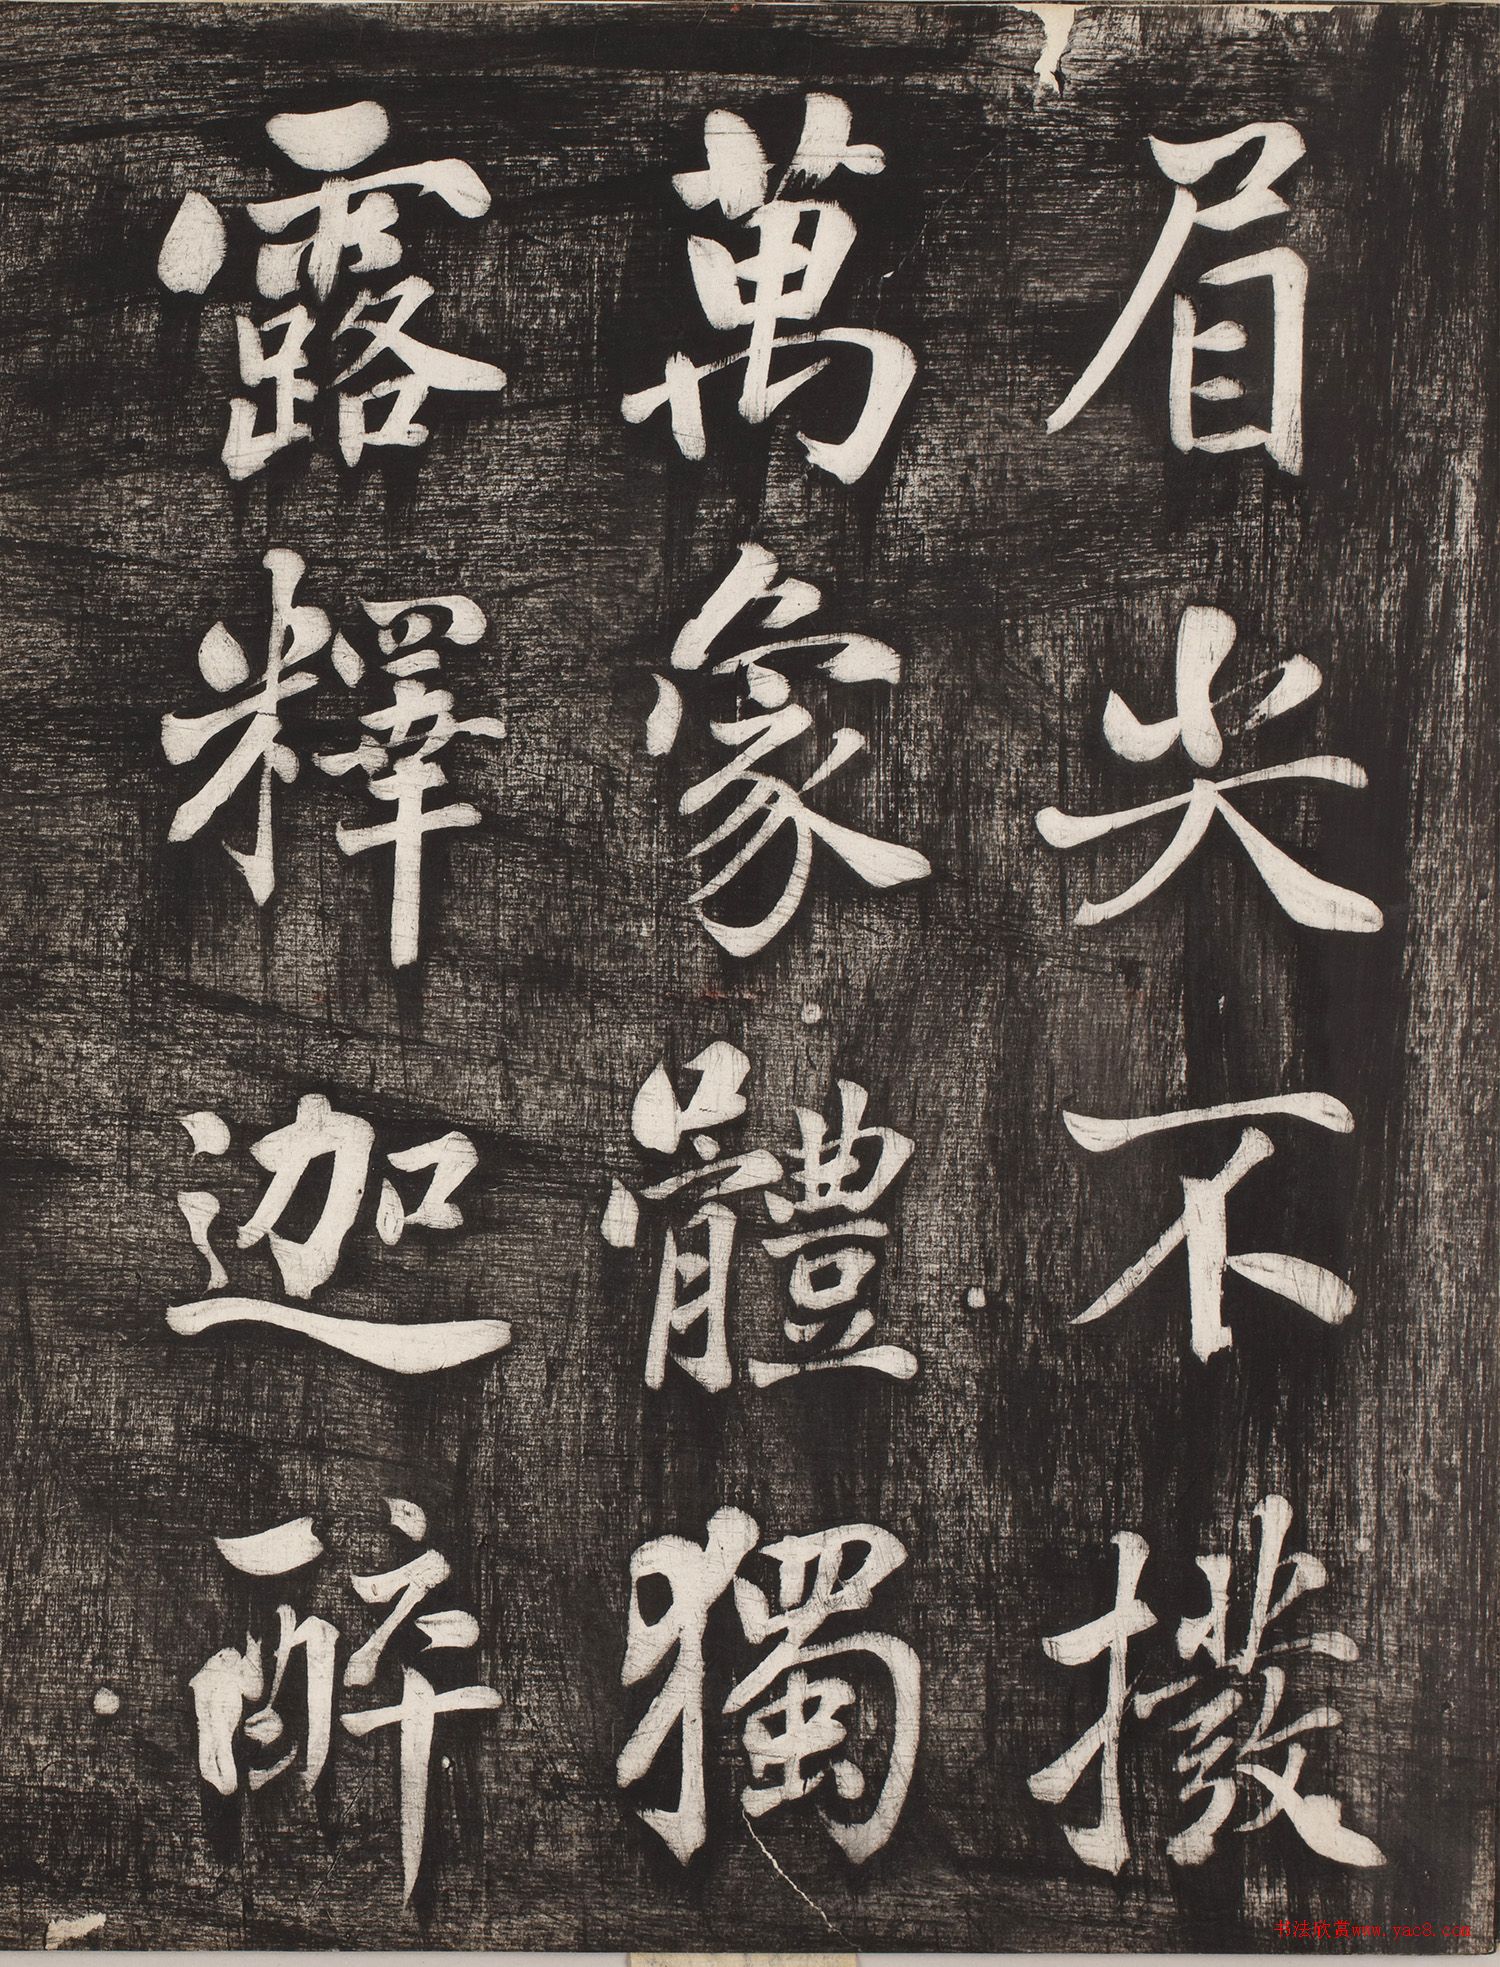 眉尖不撥
萬象體獨
露釋迦醉
书法欣赏www.yac8.com